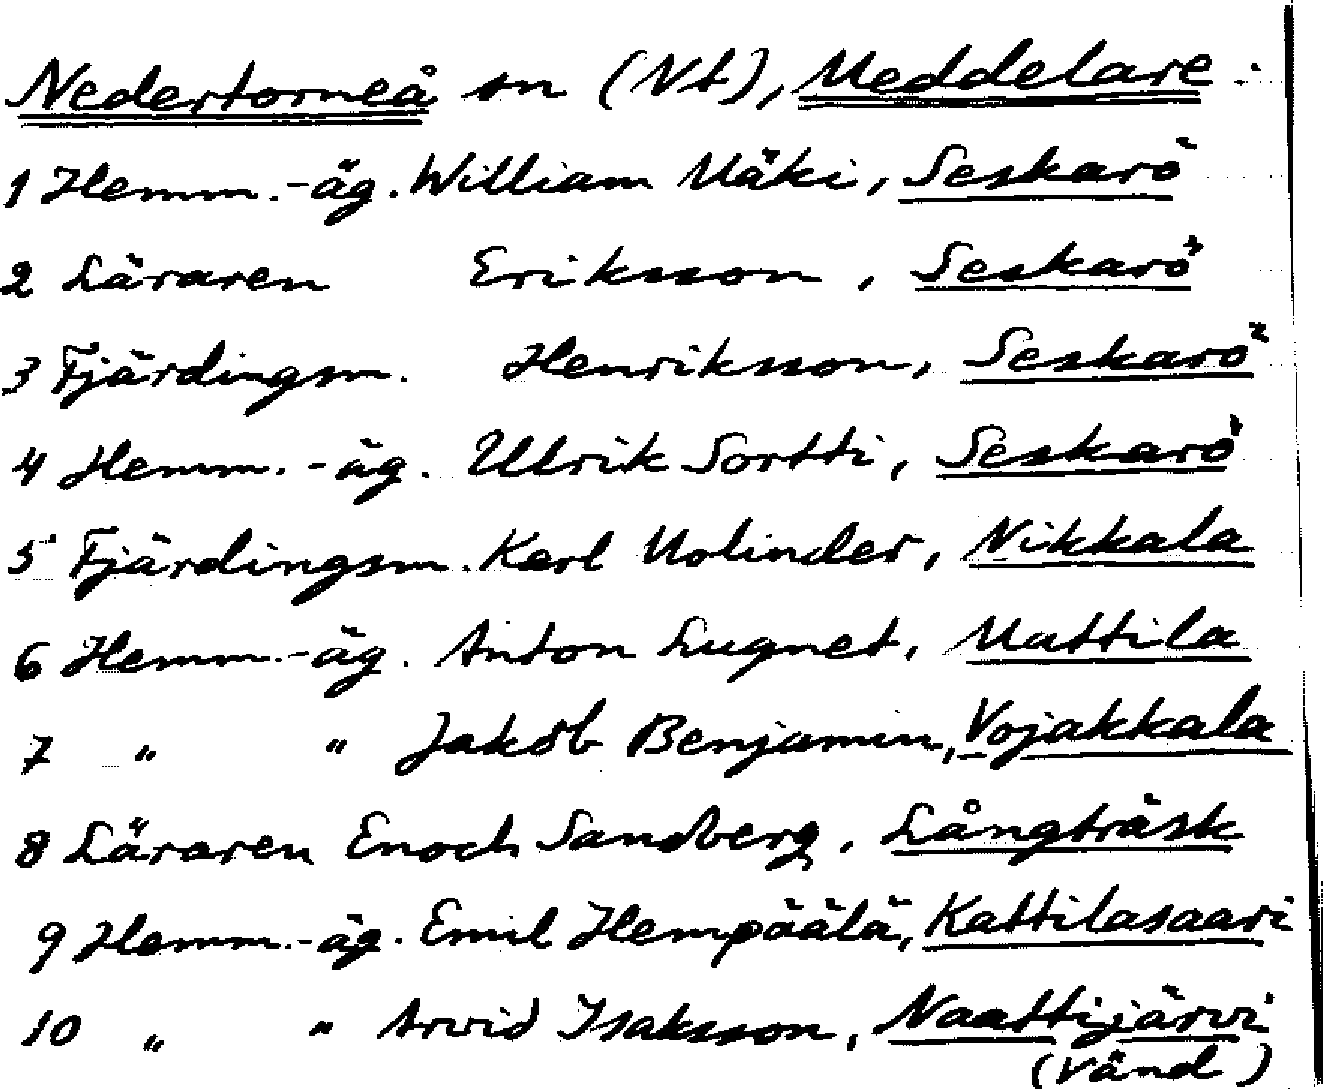 Nedertorneå sn (Nt), Meddelare:
1 Hemm.-äg. William Mäki, Seskarö
2 Läraren Eriksson, Seskarö
3 Fjärdingsm. Henriksson, Seskarö
4 Hemm.-äg. Ulrik Sortti, Seskarö
5 Fjärdingsm. Karl Molinder, Nikkala
6 Hemm.-äg. Anton Lugnet, Mattila
7 " " Jakob Benjamin, Vojakkala
8 Läraren Enoch Sandberg, Långträsk
9 Hemm.-äg. Emil Hempäälä, Kattilasaari
10 " " Arvid Isaksson, Naattijärvi
(Vänd)